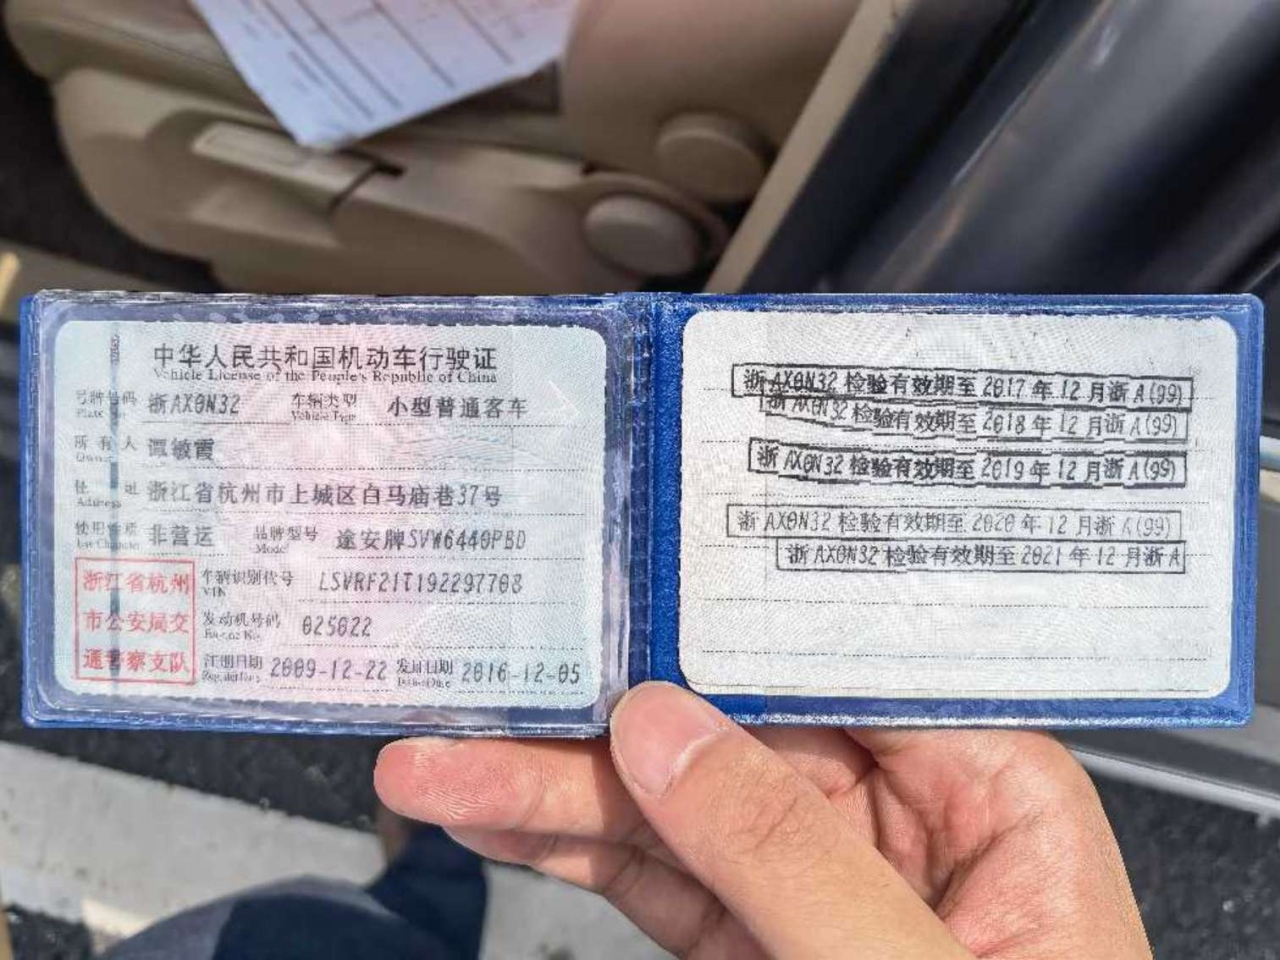 中华人民共和国机动车行驶证
Vehicle License of the People's Republic of China
号牌号码 浙AX0N32 车辆类型 小型普通客车
Plate No. Vehicle Type
所有人 谭敏霞
Owner
住址 浙江省杭州市上城区白马庙巷37号
Address
使用性质 非营运 品牌型号 途安牌SVW6440PBD
Use Character Model
浙江省杭州
市公安局交
通警察支队
车辆识别代号 LSVRF21T192297708
VIN
发动机号码 025022
Engine No.
注册日期 2009-12-22 发证日期 2016-12-05
Register Date Issue Date
浙AX0N32 检验有效期至 2017 年 12 月浙A(99)
浙AX0N32 检验有效期至 2018 年 12 月浙A(99)
浙AX0N32 检验有效期至 2019 年 12 月浙A(99)
浙AX0N32 检验有效期至 2020 年 12 月浙A(99)
浙AX0N32 检验有效期至 2021 年 12 月浙A